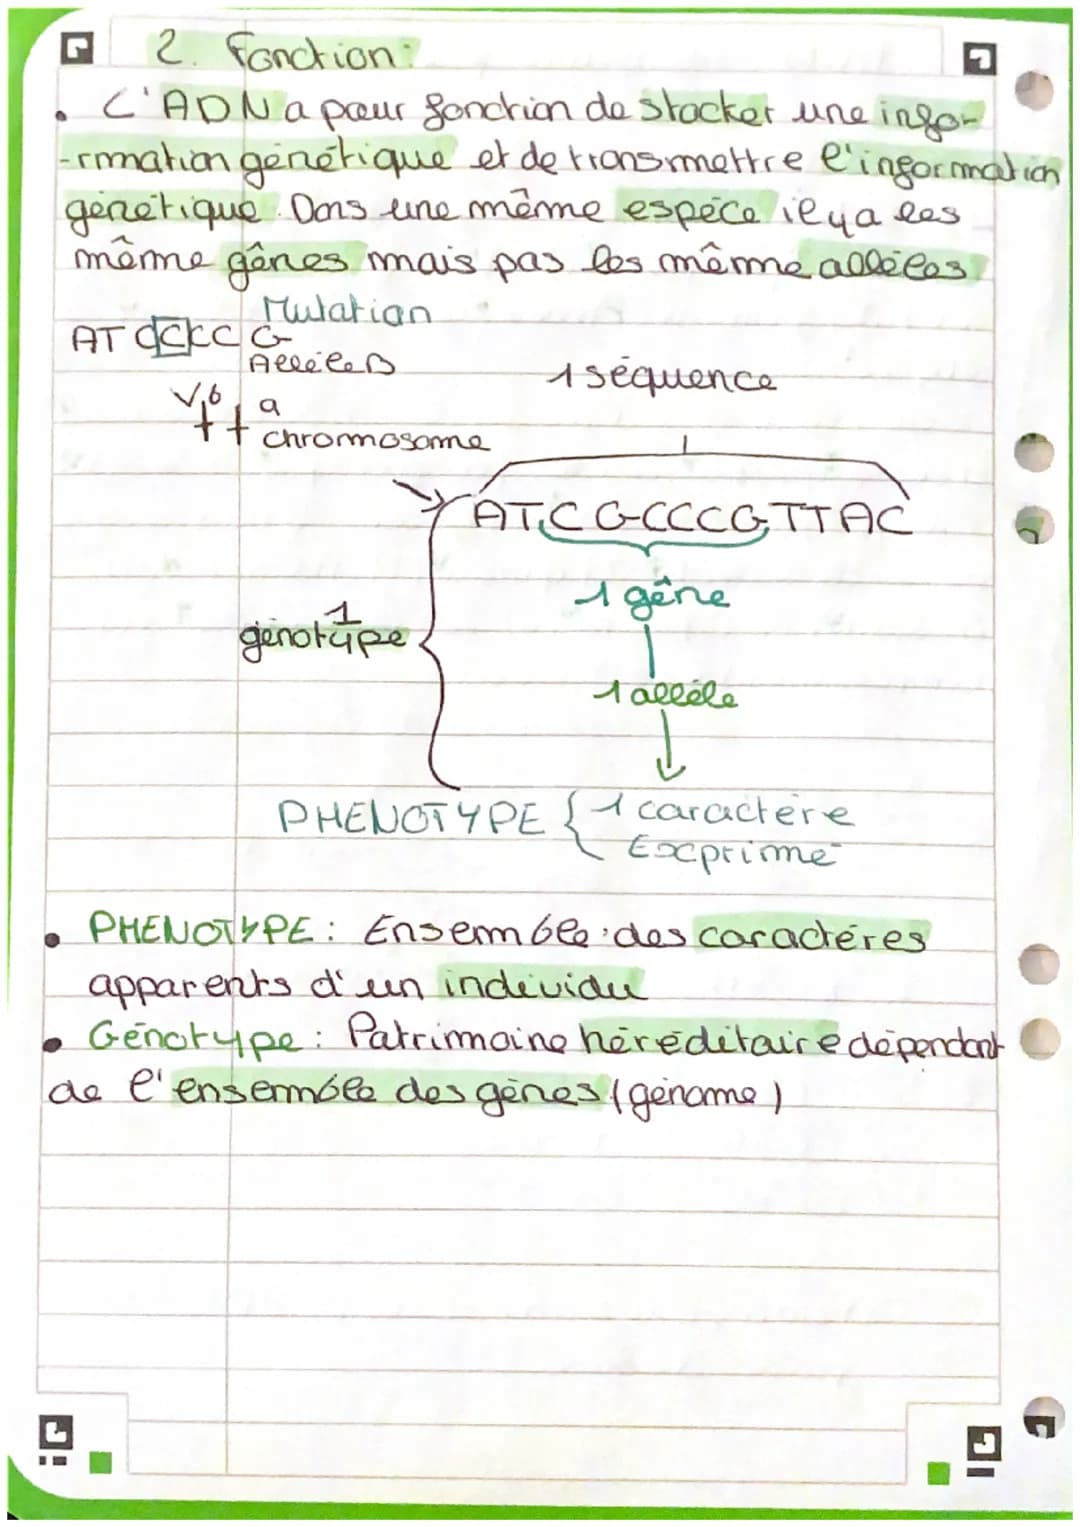 2. Fonction:
• L'ADN a pour fonction de stocker une infor-
-rmation génétique et de transmettre l'information
génétique. Dans une même espéce il y a les
même gênes mais pas les même alléles
Mutation
Alléle B
1 séquence
a
chromosome
ATCGCCCGTTAC
1 gêne
1
génotype
1 alléle
PHENOTYPE { 1 caractére
Exprimé
• PHENOTYPE : Ensemble des caractéres
apparents d'un individu
• Génotype : Patrimoine héréditaire dépendant
de l'ensemble des génes (génome)